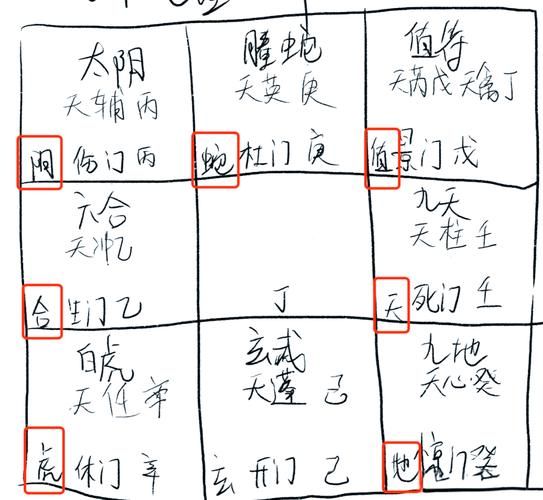 太阳
天辅 丙
阴 伤门 丙
螣蛇
天英 庚
蛇 杜门 庚
值符
天芮戊 天禽丁
值 景门 戊
六合
天冲乙
合 生门 乙
丁
九天
天柱 壬
天 死门 壬
白虎
天任 辛
虎 休门 辛
玄武
天蓬 己
玄 开门 己
九地
天心癸
地 惊门癸